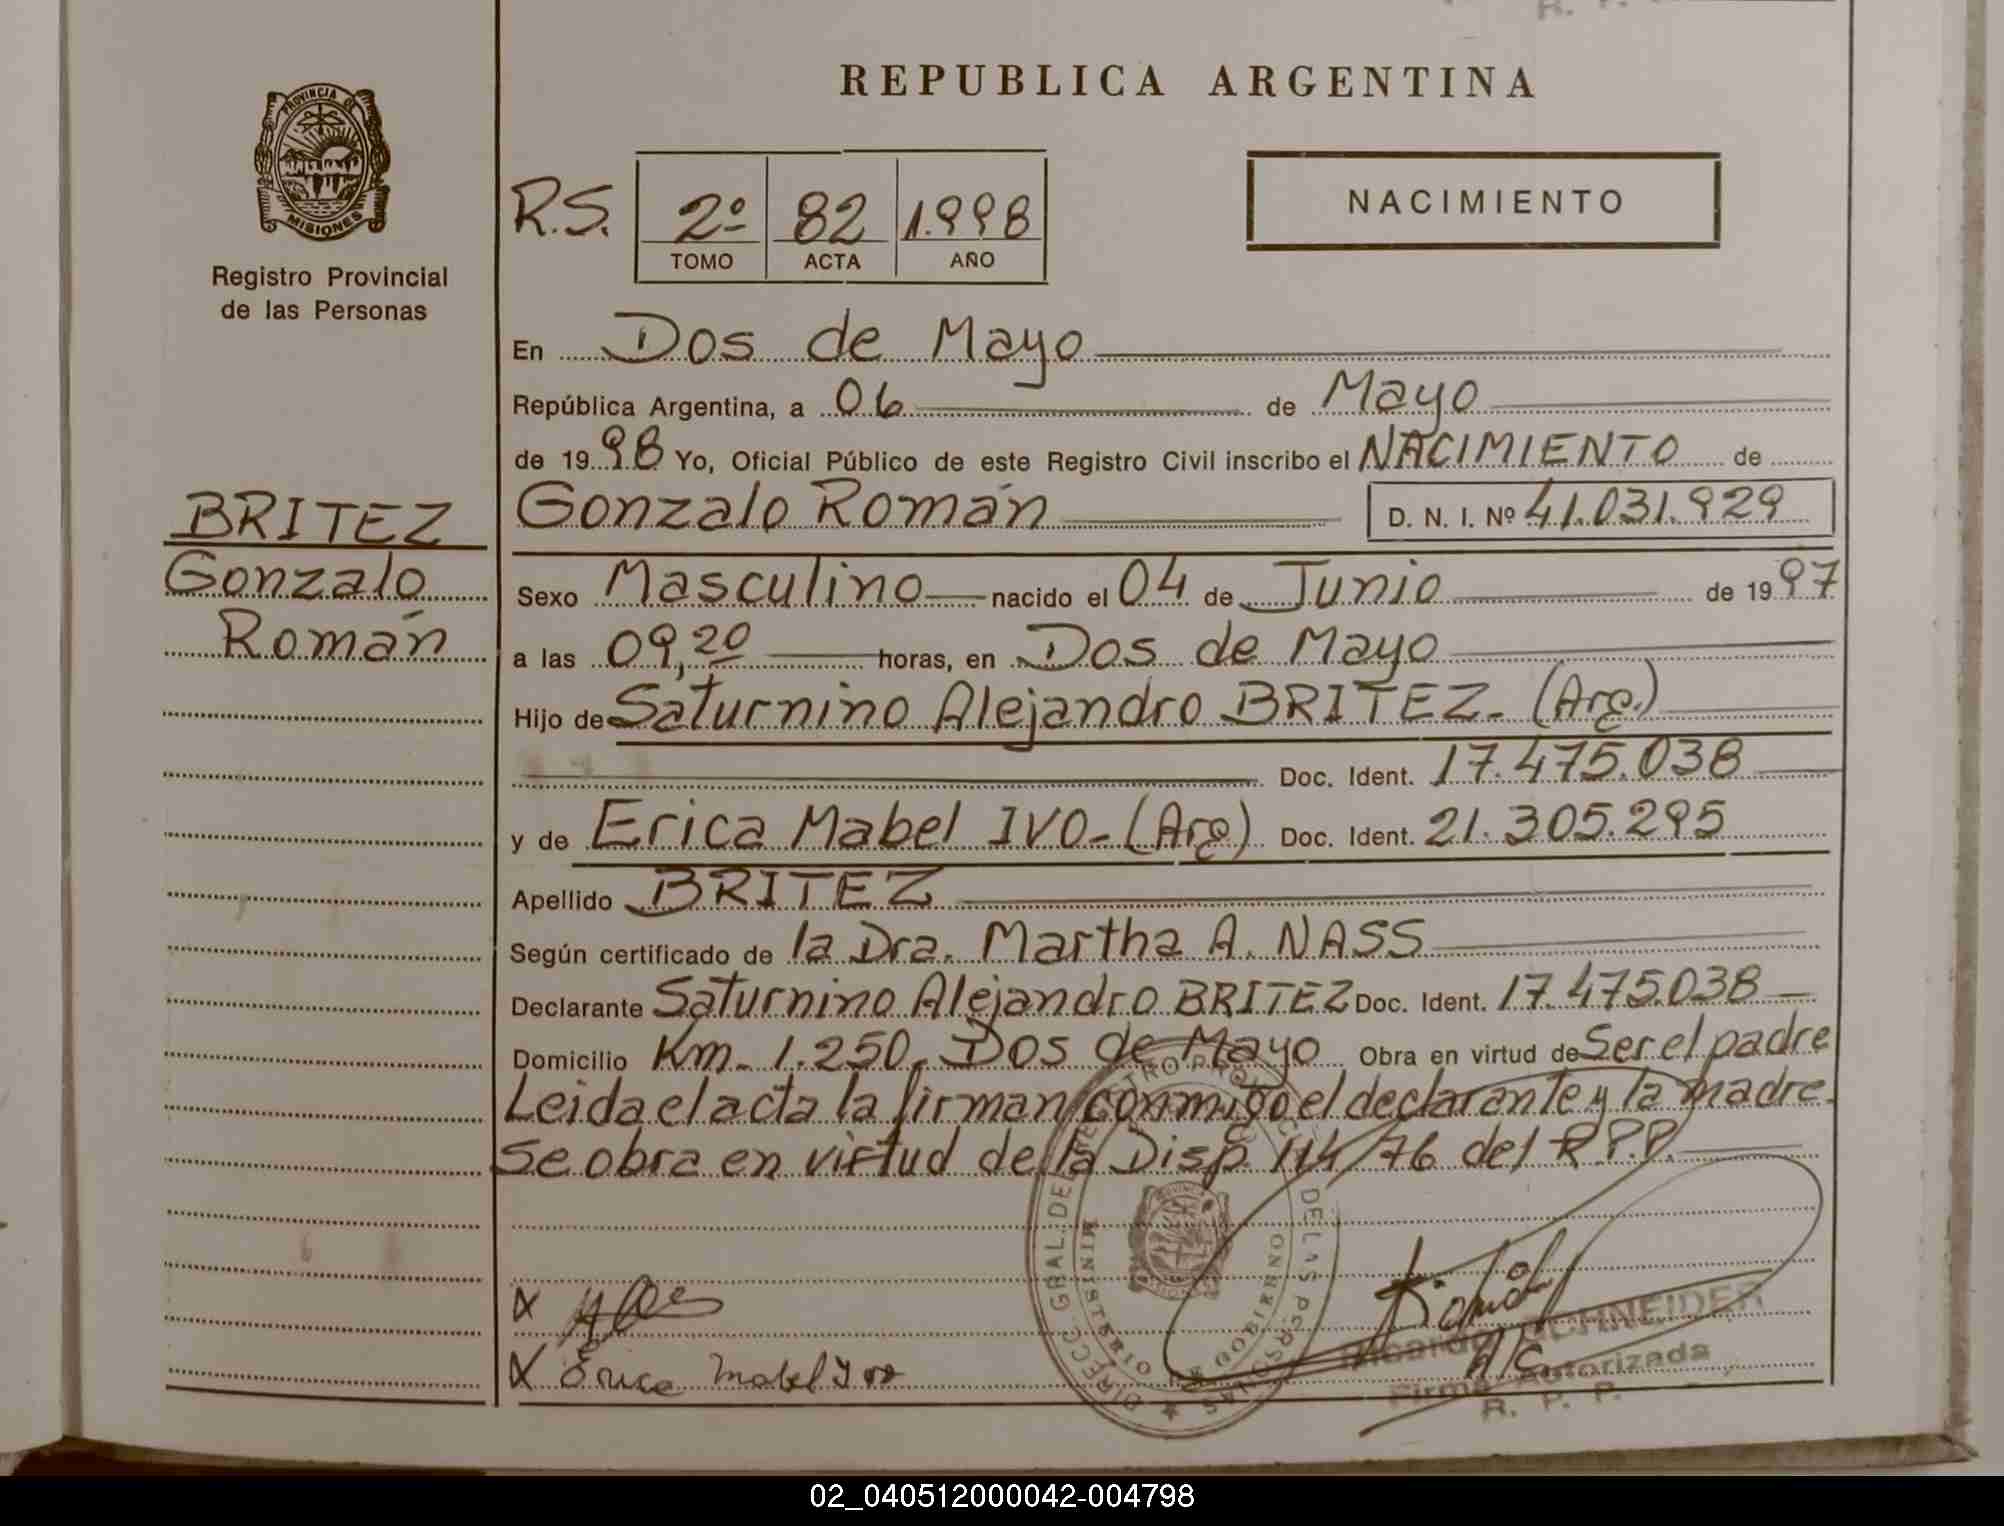 REPUBLICA ARGENTINA
PROVINCIA DE
MISIONES
Registro Provincial
de las Personas
R.S. 2º 82 1.998
TOMO ACTA AÑO
NACIMIENTO
En Dos de Mayo
República Argentina, a 06 de Mayo
de 1998 Yo, Oficial Público de este Registro Civil inscribo el NACIMIENTO de
Gonzalo Román D. N. I. Nº 41.031.929
BRITEZ
Gonzalo
Román
Sexo Masculino nacido el 04 de Junio de 1997
a las 09,20 horas, en Dos de Mayo
Hijo de Saturnino Alejandro BRITEZ- (Arg.)
Doc. Ident. 17.475.038
y de Erica Mabel IVO- (Arg) Doc. Ident. 21.305.295
Apellido BRITEZ
Según certificado de la Dra. Martha A. NASS
Declarante Saturnino Alejandro BRITEZ Doc. Ident. 17.475.038
Domicilio Km- 1.250, Dos de Mayo Obra en virtud de Ser el padre
Leida el acta la firman conmigo el declarante y la madre.
Se obra en virtud de la Disp. 114/76 del R.P.P.
X
X Erica Mabel Ivo
Ricardo SCHNEIDER
A/C
Firma Autorizada
R. P. P.
02_040512000042-004798